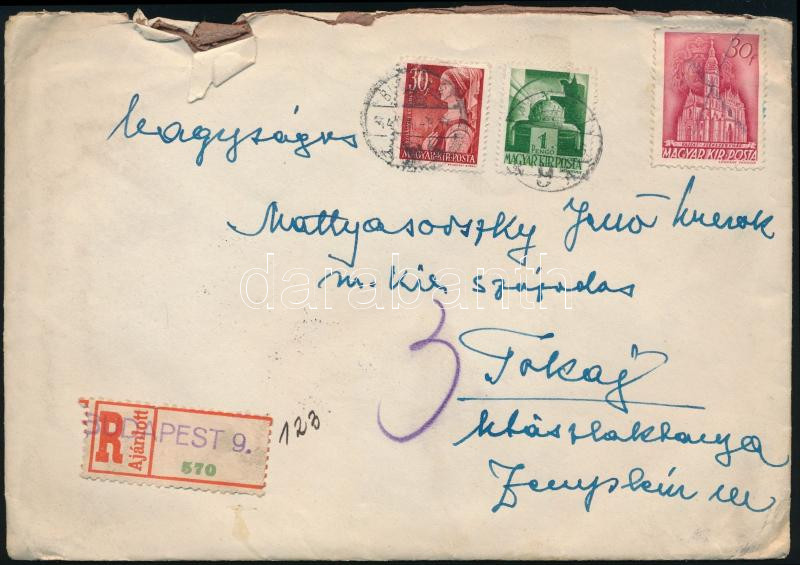 30
MAGYAR·KIR·POSTA
1
PENGŐ
MAGYAR KIR POSTA
30f
MAGYAR·KIR·POSTA
Nagyságos
Mattyasovszky Jenő
m. kir. százados
3
Tokaj
Utászlaktanya
Zemplén m
R
Ajánlott
BUDAPEST 9.
570
123
darabanth